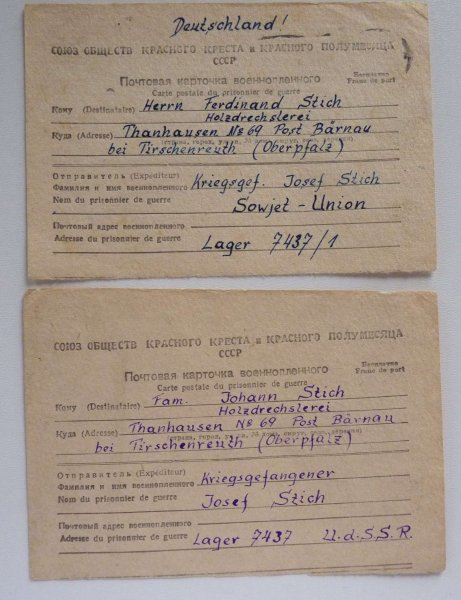 Deutschland!
СОЮЗ ОБЩЕСТВ КРАСНОГО КРЕСТА и КРАСНОГО ПОЛУМЕСЯЦА
СССР
Почтовая карточка военнопленного
Carte postale du prisonnier de guerre
Бесплатно
Franc de port
Кому (Destinataire) Herrn Ferdinand Stich
Holzdrechslerei
Куда (Adresse) Thanhausen № 69 Post Bärnau
bei Tirschenreuth (Oberpfalz)
Отправитель (Expéditeur)
Фамилия и имя военнопленного Kriegsgef. Josef Stich
Nom du prisonnier de guerre
Sowjet-Union
Почтовый адрес военнопленного
Adresse du prisonnier de guerre Lager 7437/1
СОЮЗ ОБЩЕСТВ КРАСНОГО КРЕСТА и КРАСНОГО ПОЛУМЕСЯЦА
СССР
Почтовая карточка военнопленного
Carte postale du prisonnier de guerre
Бесплатно
Franc de port
Кому (Destinataire) Fam. Johann Stich
Holzdrechslerei
Куда (Adresse) Thanhausen № 69 Post Bärnau
bei Tirschenreuth (Oberpfalz)
Отправитель (Expéditeur)
Фамилия и имя военнопленного Kriegsgefangener
Nom du prisonnier de guerre Josef Stich
Почтовый адрес военнопленного
Adresse du prisonnier de guerre Lager 7437 U.d.S.S.R.